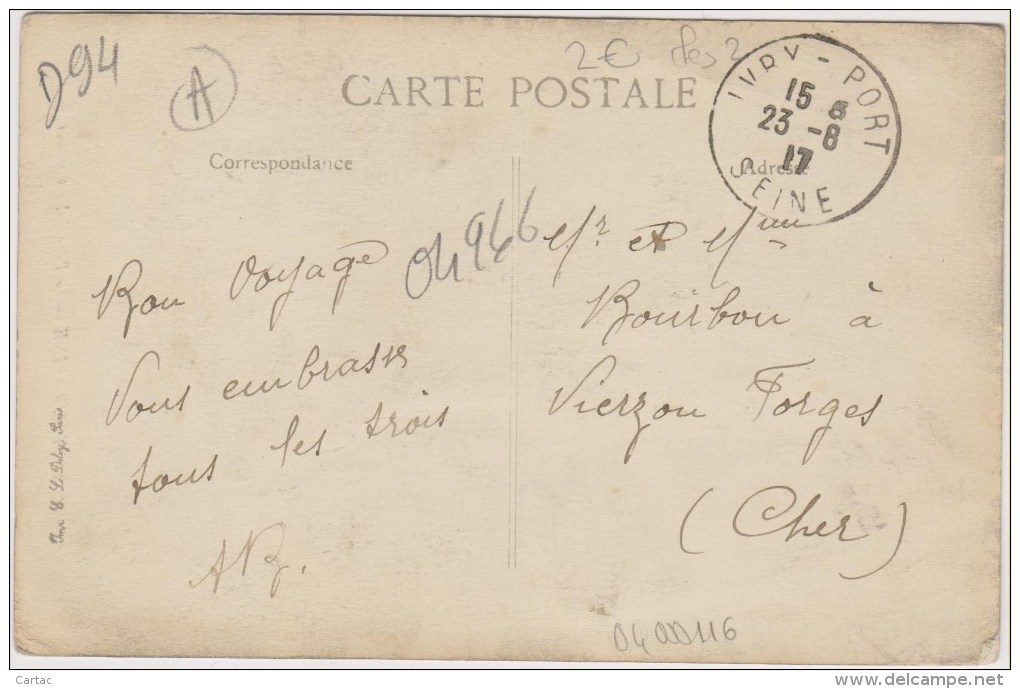 D94
A
2€ les 2
CARTE POSTALE
IVRY - PORT
15
23 - 8
17
SEINE
Correspondance
Adresse
04966
Bon Voyage
Vous embrasse
tous les trois
AB.
Mr et Mme
Bourbon à
Vierzon Forges
(Cher)
Imp. E. Le Deley, Paris
04000116
Cartac
www.delcampe.net